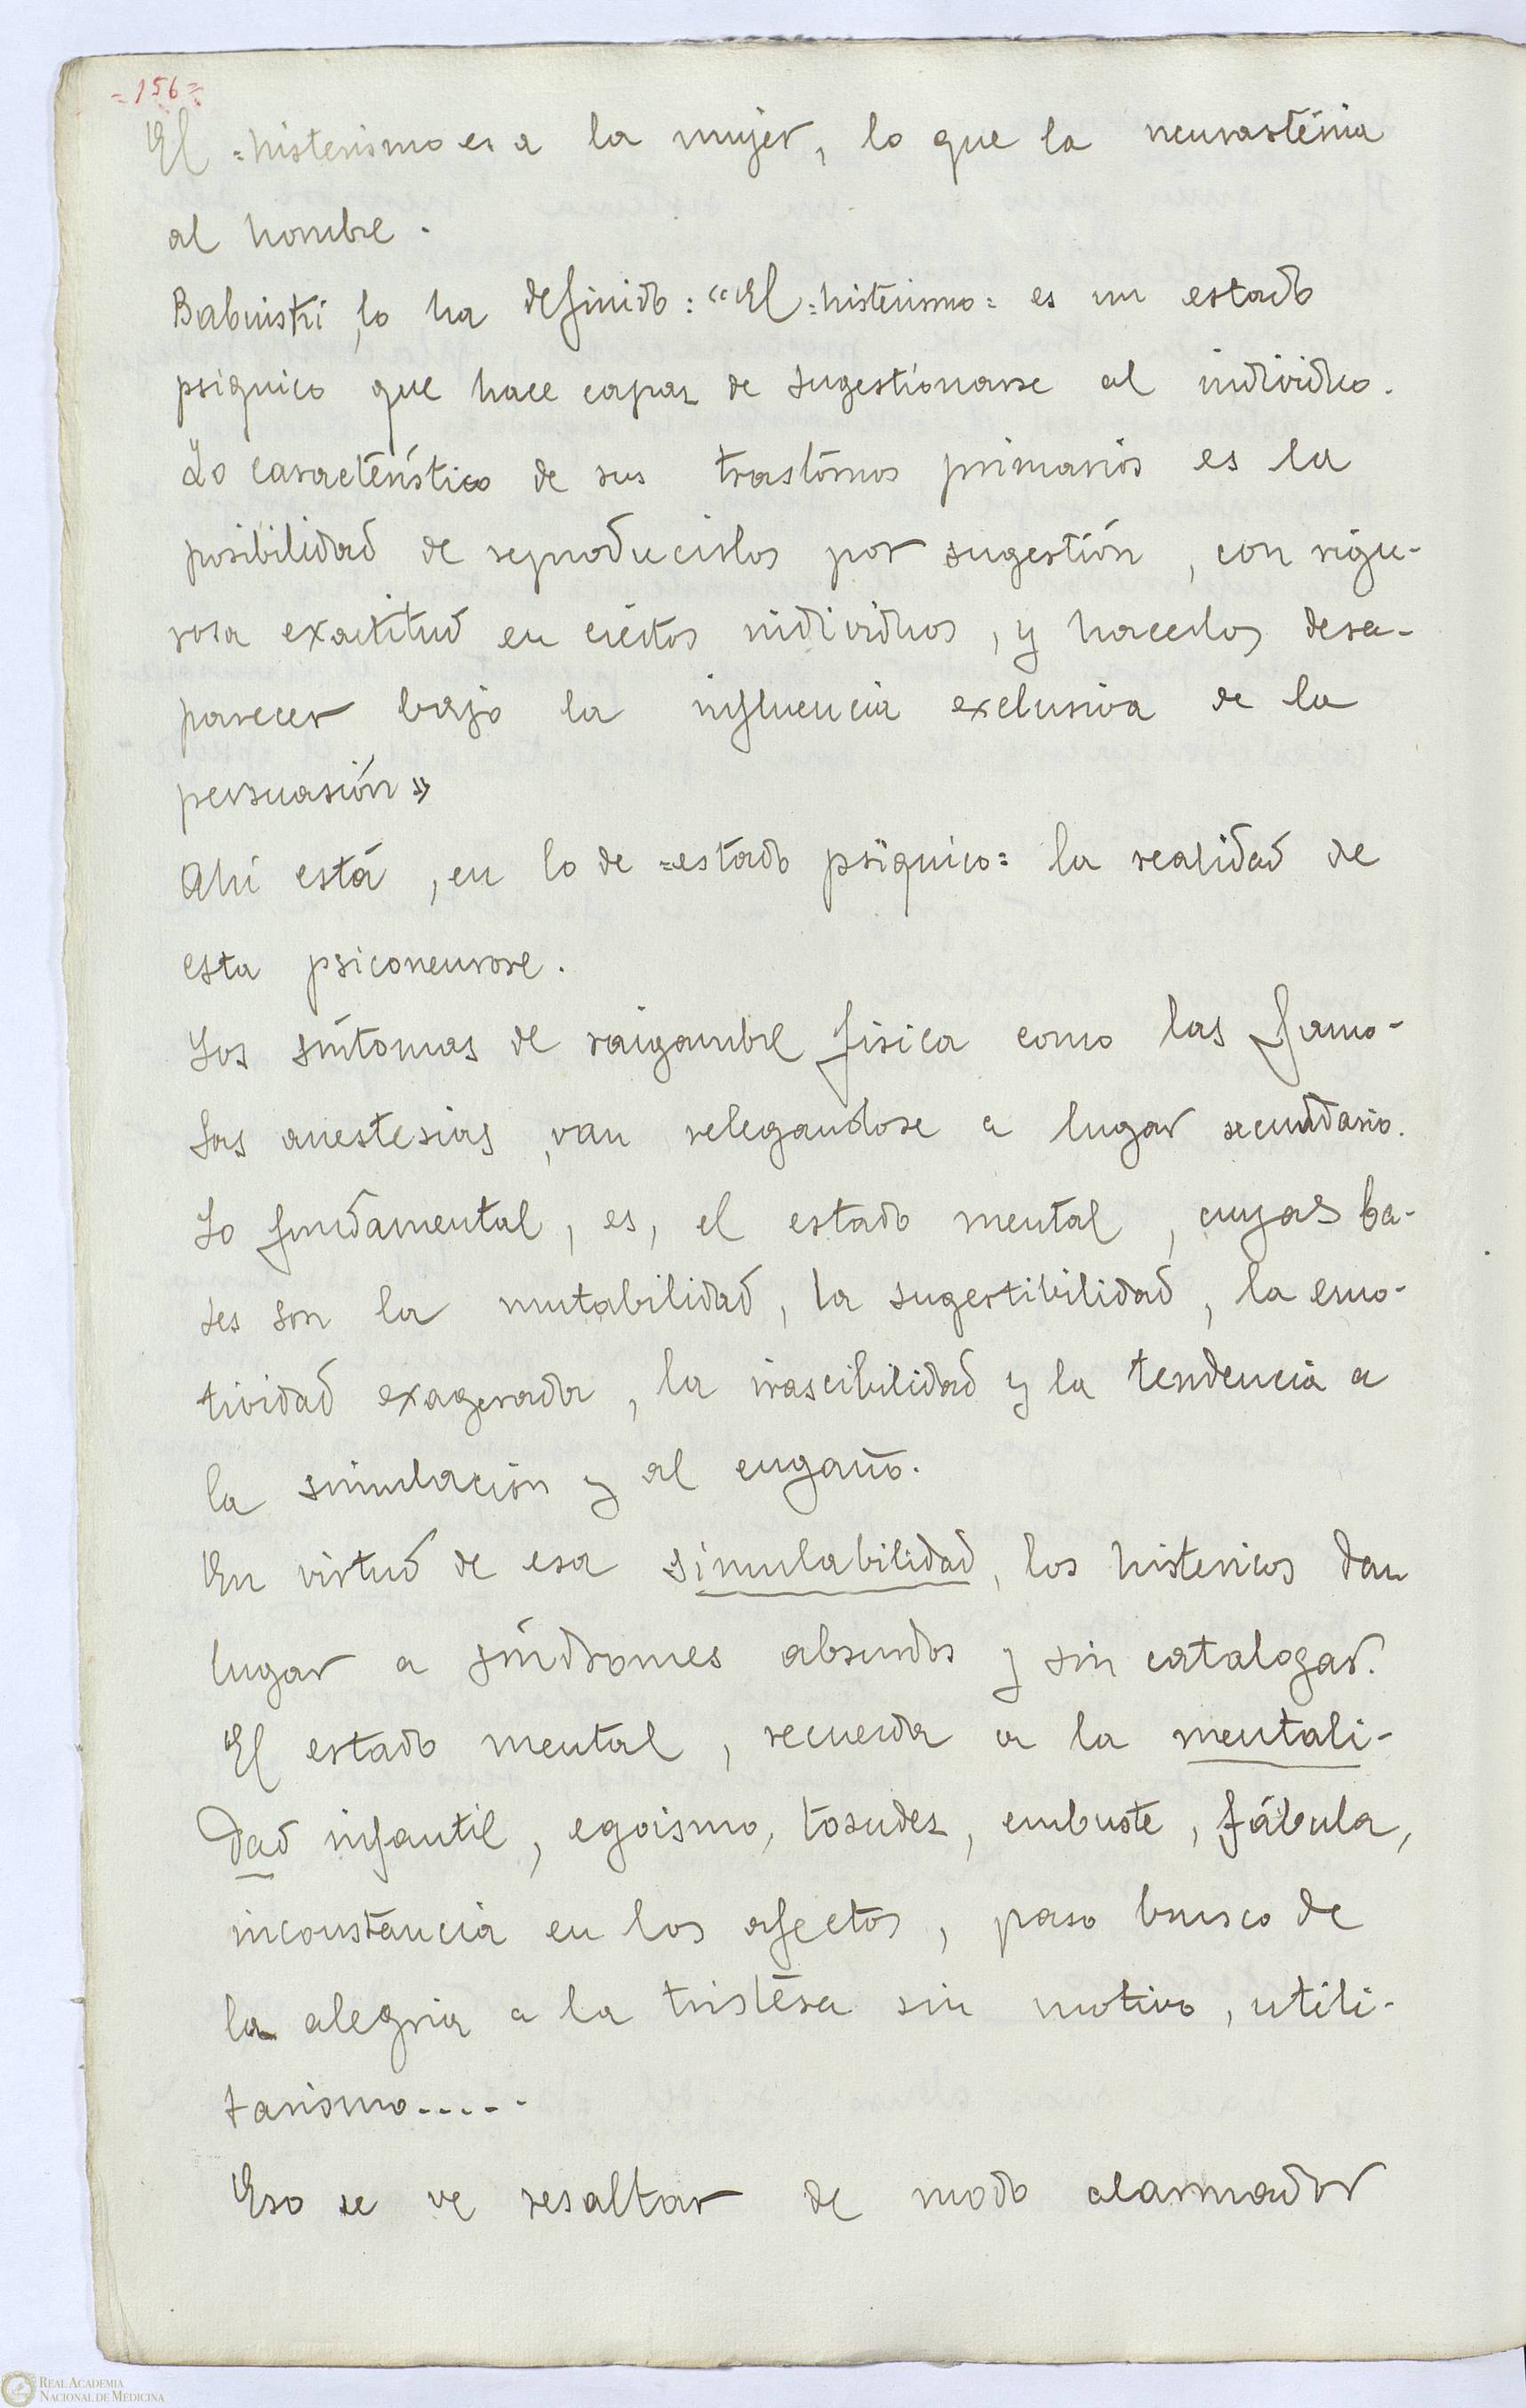 =156=
El =histerismo es a la mujer, lo que la neurasténia
al hombre.
Babinski, lo ha definido: "El =histerismo= es un estado
psíquico que hace capaz de sugestionarse al individuo.
Lo característico de sus trastornos primarios es la
posibilidad de reproducirlos por sugestión, con rigu-
rosa exactitud en ciertos individuos, y hacerlos desa-
parecer bajo la influencia exclusiva de la
persuasión»
Ahí está, en lo de =estado psíquico= la realidad de
esta psiconeurose.
Los síntomas de raigambre física como las famo-
sas anestesias, van relegandose a lugar secundario.
Lo fundamental, es, el estado mental, cuyas ba-
ses son la mutabilidad, la sugestibilidad, la emo-
tividad exagerada, la irascibilidad y la tendencia a
la simulación y al engaño.
En virtud de esa simulabilidad, los histericos dan
lugar a síndromes absurdos y sin catalogar.
El estado mental, recuerda a la mentali-
dad infantil, egoismo, tosudez, embuste, fábula,
inconstancia en los afectos, paso brusco de
la alegria a la tristésa sin motivo, utili-
tarismo.....
Eso se ve resaltar de modo alarmador
REAL ACADEMIA
NACIONAL DE MEDICINA